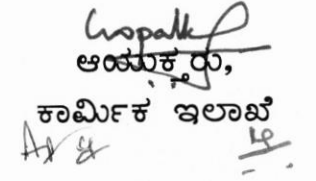 ಆಯುಕ್ತರು,
ಕಾರ್ಮಿಕ ಇಲಾಖೆ